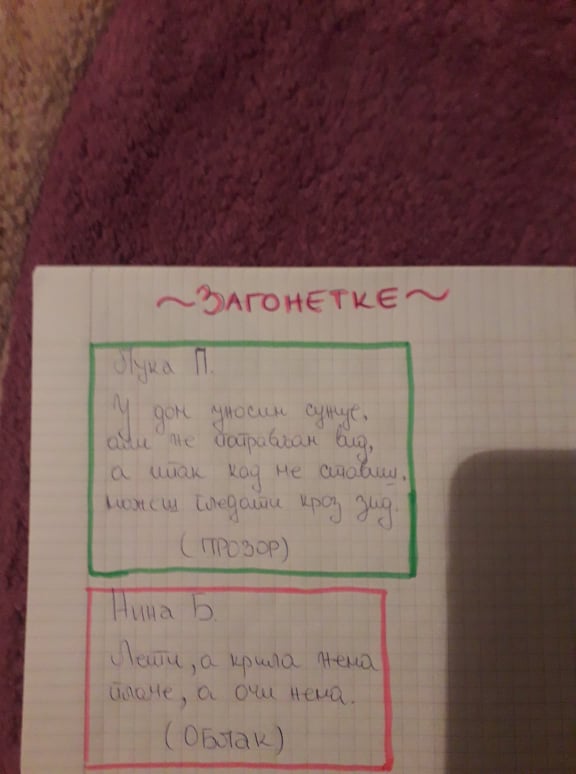 ~ЗАГОНЕТКЕ~
Лука П.
У дом уносим сунце,
али не
вид,
а ипак кад ме ставиш,
можеш гледати кроз зид.
(ПРОЗОР)
Нина Б.
Лети, а крила нема
плаче, а очи нема.
(ОБЛАК)